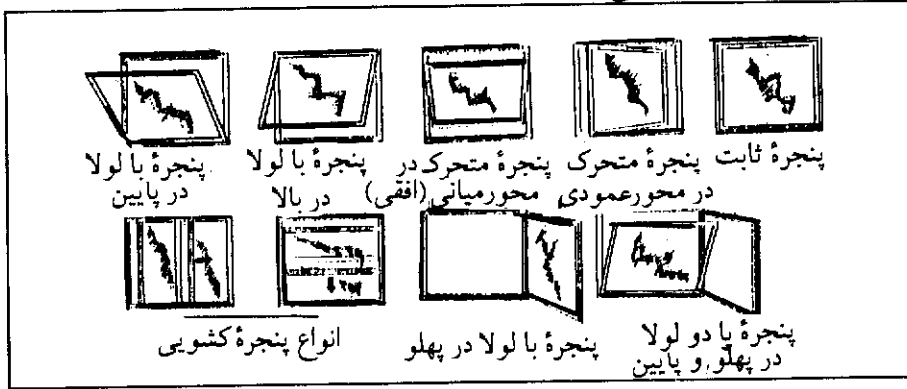 پنجرهٔ ثابت
پنجرهٔ متحرک
در محور عمودی
پنجرهٔ متحرک در
محور میانی (افقی)
پنجرهٔ با لولا
در بالا
پنجرهٔ با لولا
در پایین
پنجرهٔ با دو لولا
در پهلو و پایین
پنجرهٔ با لولا در پهلو
انواع پنجرهٔ کشویی